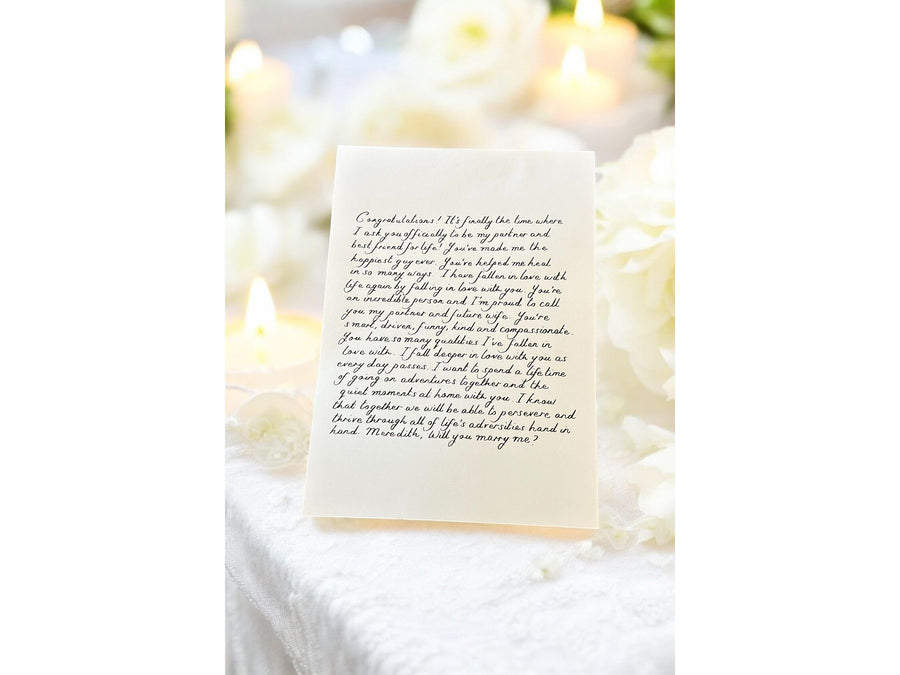 Congratulations! It's finally the time where
I ask you officially to be my partner and
best friend for life! You've made me the
happiest guy ever. You've helped me heal
in so many ways. I have fallen in love with
life again by falling in love with you. You're
an incredible person and I'm proud to call
you my partner and future wife. You're
smart, driven, funny, kind and compassionate.
You have so many qualities I've fallen in
love with. I fall deeper in love with you as
every day passes. I want to spend a lifetime
of going on adventures together and the
quiet moments at home with you. I know
that together we will be able to persevere and
thrive through all of life's adversities hand in
hand. Meredith, Will you marry me?